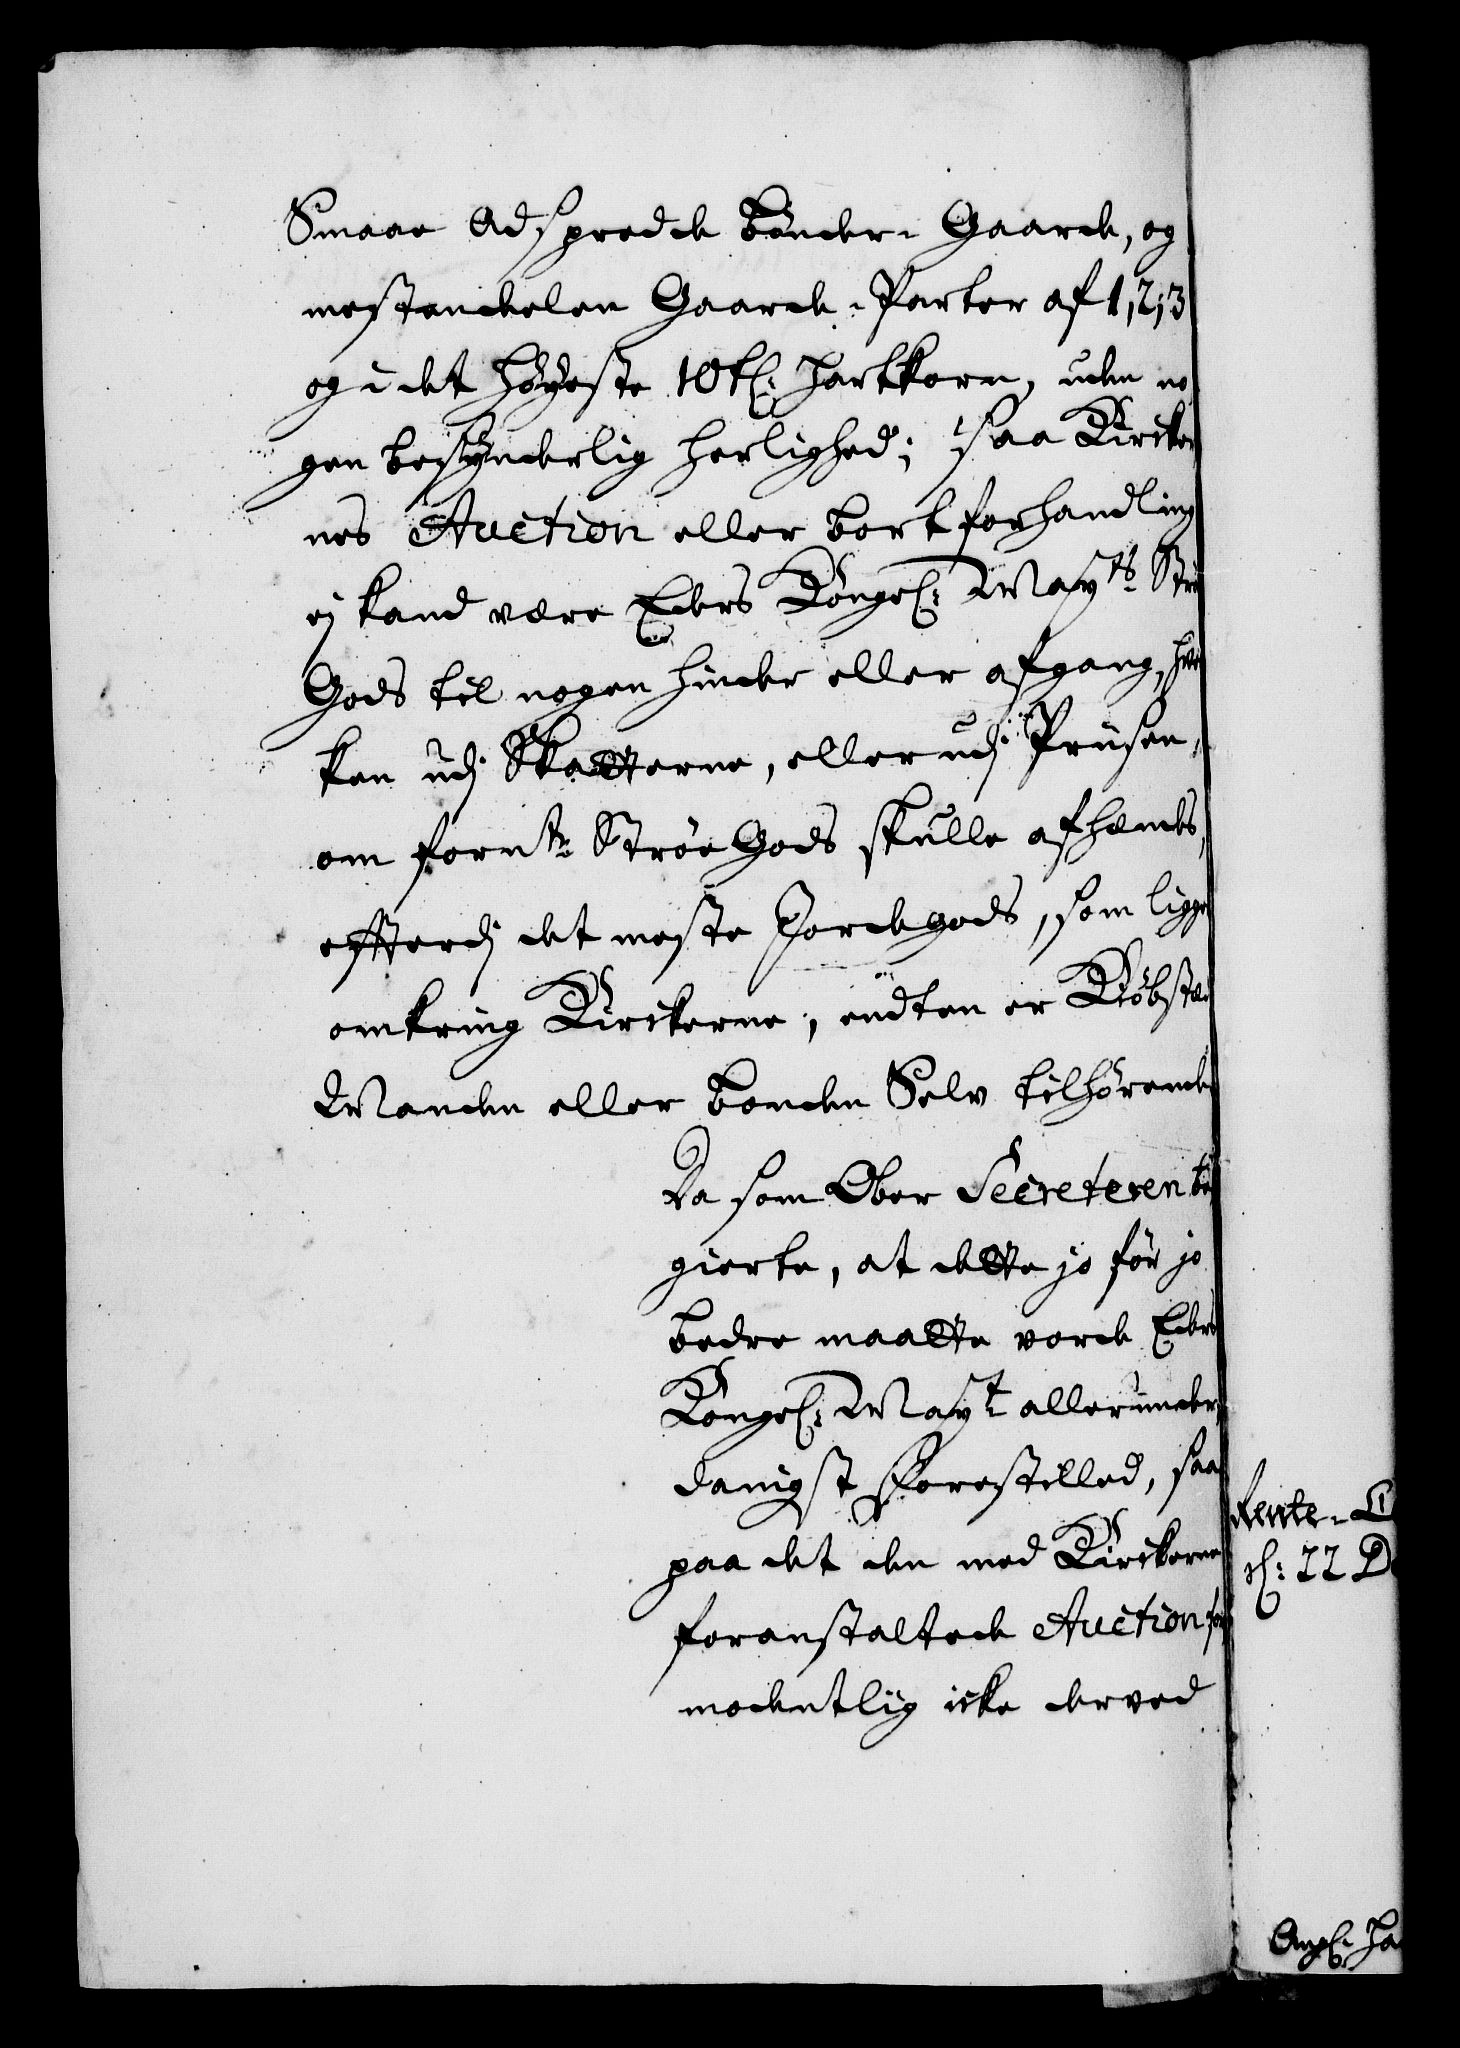 Smaae Adspredde bönder Gaarde, og
mestendelen Gaarde-Parter af 1, 2, 3
og i det höÿeste 10 tl: hartkorn, uden no
gen besÿnderlig herlighed; saa Kircker
nes Auction eller bortforhandling
ej kand være Eders Kongel: Mayts Strö
Gods til nogen hinder eller afgang, hver
ken udj Skatterne, eller udj Prisen,
om fornte Ströe Gods skulle afhændes,
effterdj det meste Jordegods, som ligger
omkring Kirckerne, endten er Kiöbsted
Manden eller bonden Selv tilhörende
Da som Ober Secreteren be
gierte, at dette jo för jo
bedre maatte vorde Eders
Kongel: Mayt allerunder
danigst Forestilled, saa
paa det den med Kirckerne
foranstaltede Auction for
modentlig icke derved
Rente-C
cl: 22 D